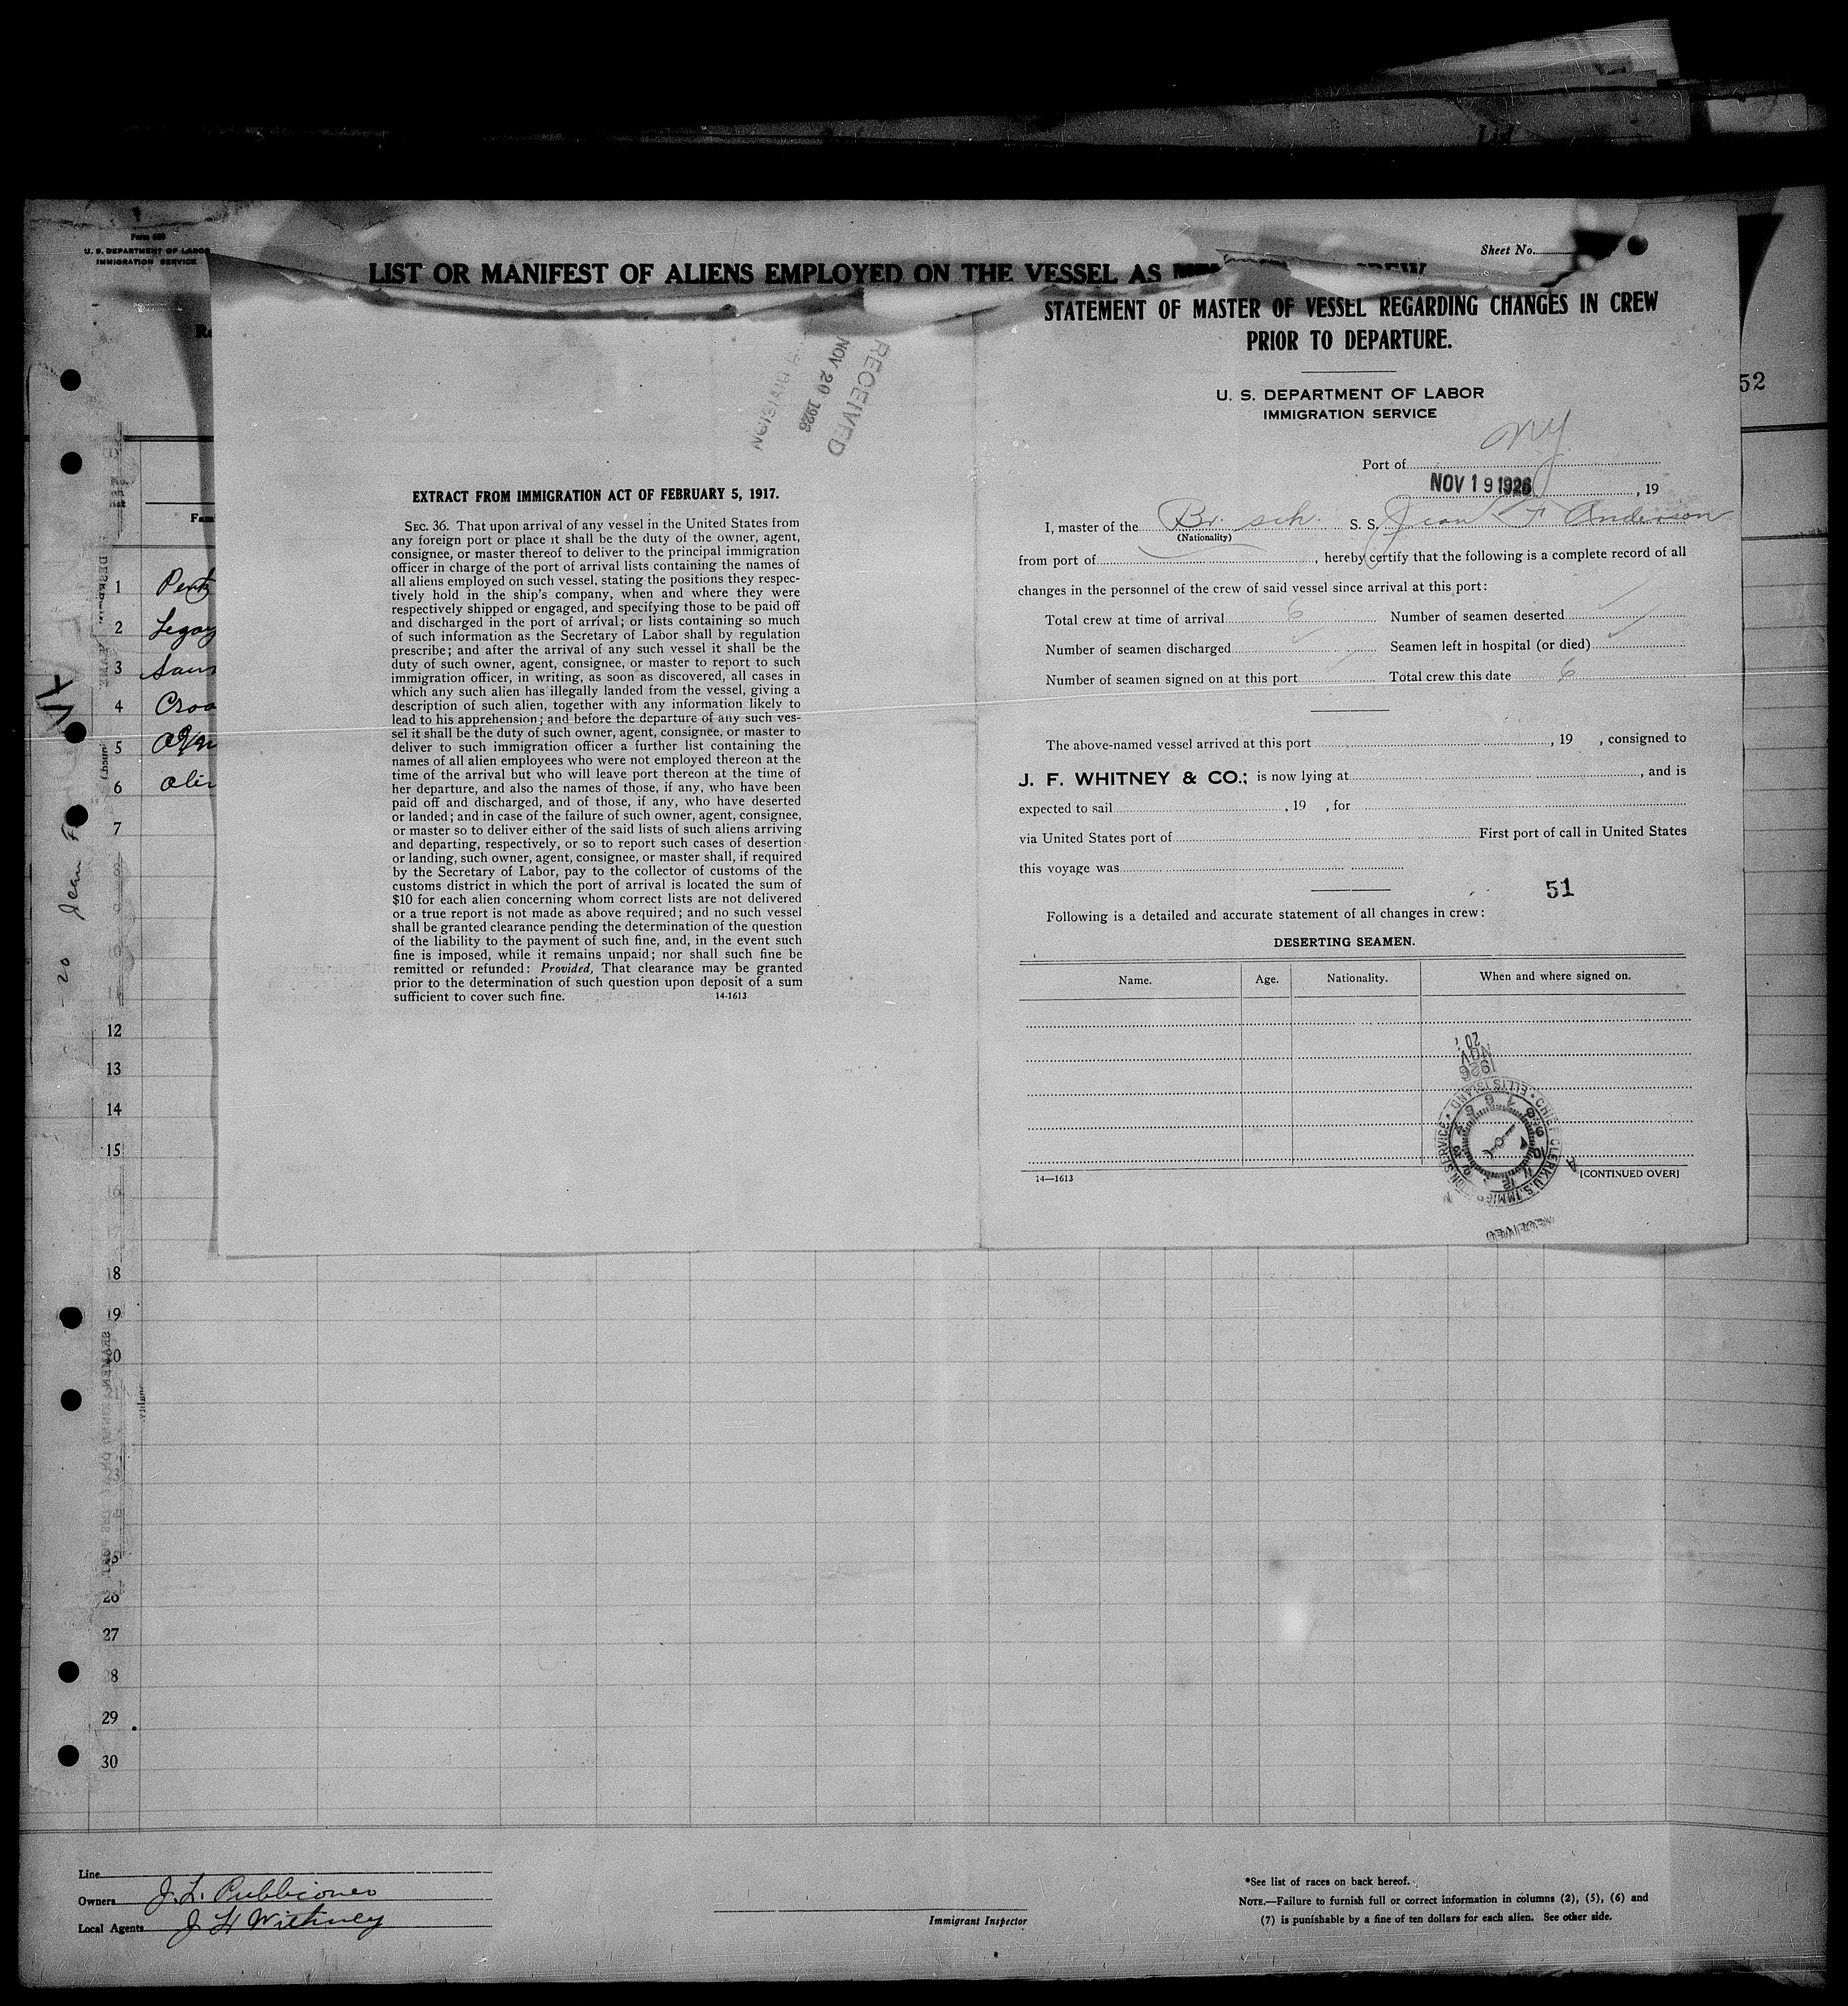 Form 680
U. S. DEPARTMENT OF LABOR
IMMIGRATION SERVICE
Sheet No.
LIST OR MANIFEST OF ALIENS EMPLOYED ON THE VESSEL AS
52
RECEIVED
NOV 20 1926
DIVISION
EXTRACT FROM IMMIGRATION ACT OF FEBRUARY 5, 1917.
SEC. 36. That upon arrival of any vessel in the United States from
any foreign port or place it shall be the duty of the owner, agent,
consignee, or master thereof to deliver to the principal immigration
officer in charge of the port of arrival lists containing the names of
all aliens employed on such vessel, stating the positions they respec-
tively hold in the ship's company, when and where they were
respectively shipped or engaged, and specifying those to be paid off
and discharged in the port of arrival; or lists containing so much
of such information as the Secretary of Labor shall by regulation
prescribe; and after the arrival of any such vessel it shall be the
duty of such owner, agent, consignee, or master to report to such
immigration officer, in writing, as soon as discovered, all cases in
which any such alien has illegally landed from the vessel, giving a
description of such alien, together with any information likely to
lead to his apprehension; and before the departure of any such ves-
sel it shall be the duty of such owner, agent, consignee, or master to
deliver to such immigration officer a further list containing the
names of all alien employees who were not employed thereon at the
time of the arrival but who will leave port thereon at the time of
her departure, and also the names of those, if any, who have been
paid off and discharged, and of those, if any, who have deserted
or landed; and in case of the failure of such owner, agent, consignee,
or master so to deliver either of the said lists of such aliens arriving
and departing, respectively, or so to report such cases of desertion
or landing, such owner, agent, consignee, or master shall, if required
by the Secretary of Labor, pay to the collector of customs of the
customs district in which the port of arrival is located the sum of
$10 for each alien concerning whom correct lists are not delivered
or a true report is not made as above required; and no such vessel
shall be granted clearance pending the determination of the question
of the liability to the payment of such fine, and, in the event such
fine is imposed, while it remains unpaid; nor shall such fine be
remitted or refunded: Provided, That clearance may be granted
prior to the determination of such question upon deposit of a sum
sufficient to cover such fine. 14-1613
STATEMENT OF MASTER OF VESSEL REGARDING CHANGES IN CREW
PRIOR TO DEPARTURE.
U. S. DEPARTMENT OF LABOR
IMMIGRATION SERVICE
Port of NY
NOV 19 1926, 19
I, master of the Br. sch. S. S. Jean F Anderson
(Nationality)
from port of , hereby certify that the following is a complete record of all
changes in the personnel of the crew of said vessel since arrival at this port:
Total crew at time of arrival 6 Number of seamen deserted
Number of seamen discharged Seamen left in hospital (or died)
Number of seamen signed on at this port Total crew this date 6
The above-named vessel arrived at this port , 19 , consigned to
J. F. WHITNEY & CO.; is now lying at , and is
expected to sail , 19 , for
via United States port of First port of call in United States
this voyage was
51
Following is a detailed and accurate statement of all changes in crew:
DESERTING SEAMEN.
Name. Age. Nationality. When and where signed on.
20
NOV
1926
CHIEF CLERK, U.S. IMMIGRATION SERVICE ELLIS ISLAND
RECEIVED
14—1613 [CONTINUED OVER]
1
2
3
4
5
6
7
12
13
14
15
16
18
19
20
25
26
27
28
29
30
20 Jean F
Line
Owners
Local Agents
Immigrant Inspector
*See list of races on back hereof.
NOTE.—Failure to furnish full or correct information in columns (2), (5), (6) and
(7) is punishable by a fine of ten dollars for each alien. See other side.